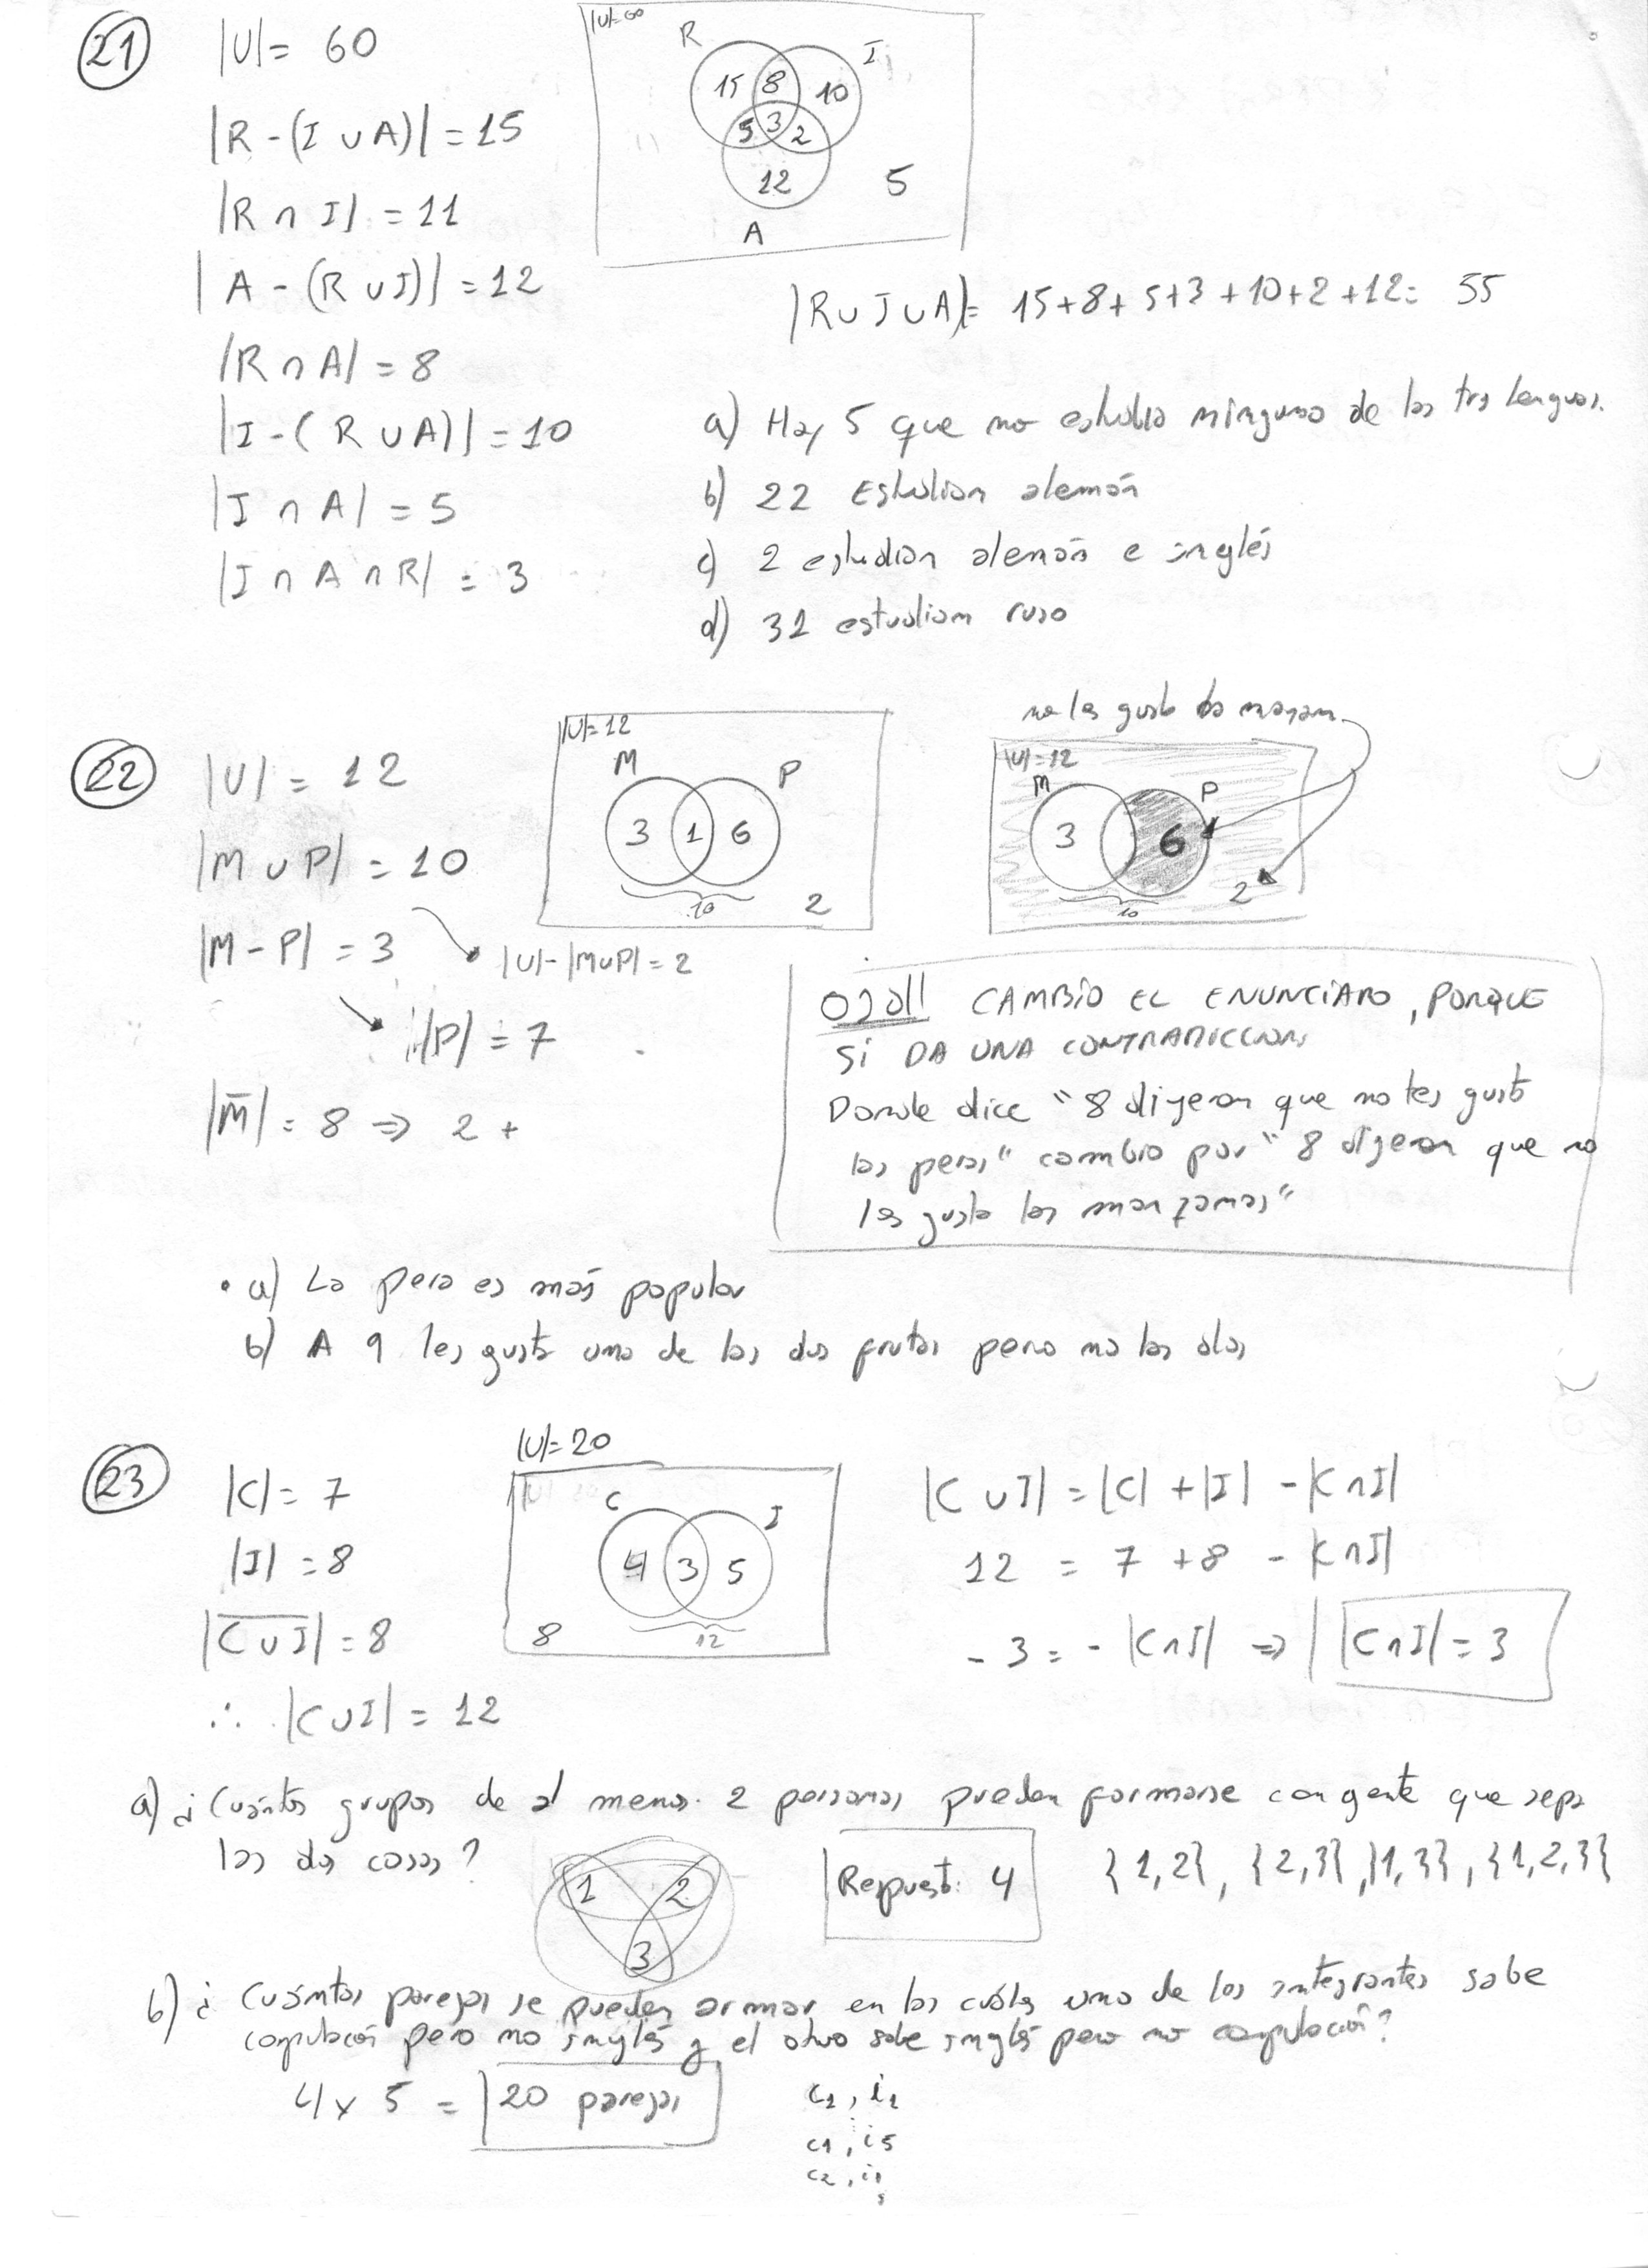 21
|U| = 60
|R - (I ∪ A)| = 15
|R ∩ I| = 11
|A - (R ∪ I)| = 12
|R ∩ A| = 8
|I - (R ∪ A)| = 10
|I ∩ A| = 5
|I ∩ A ∩ R| = 3
|U|=60
R
I
15 8 10
5 3 2
12
5
A
|R ∪ I ∪ A| = 15+8+5+3+10+2+12= 55
a) Hay 5 que no estudia ninguno de las tres lenguas.
b) 22 Estudian alemán
c) 2 estudian alemán e inglés
d) 31 estudian ruso
22
|U| = 12
|M ∪ P| = 10
|M - P| = 3
|U|-|M∪P| = 2
|P| = 7
|M̅| = 8 ⇒ 2 +
|U|=12
M P
3 1 6
10
2
no les gusta
|U|=12
M P
3 6
10
2
OJO!! CAMBIO EL ENUNCIADO, PORQUE
SI DA UNA CONTRADICCION
Donde dice "8 dijeron que no les gusta
las peras" cambio por "8 dijeron que no
les gusta las manzanas"
• a) La pera es más popular
b) A 9 les gusta una de las dos frutas pero no las dos
23
|C| = 7
|I| = 8
|C̅ ̅∪̅ ̅I̅| = 8
∴ |C∪I| = 12
|U|= 20
|U|
C I
4 3 5
8
12
|C ∪ I| = |C| + |I| - |C ∩ I|
12 = 7 + 8 - |C∩I|
- 3 = - |C∩I| ⇒ |C∩I| = 3
a) ¿Cuántos grupos de al menos 2 personas pueden formarse con gente que sepa
las dos cosas?
1 2
3
Respuest: 4
{1,2}, {2,3}, {1,3}, {1,2,3}
b) ¿Cuántas parejas se pueden armar en las cuáles uno de los integrantes sabe
computación pero no inglés y el otro sabe inglés pero no computación?
4 x 5 = 20 parejas
c1, i1
c1, i5
c2, i1